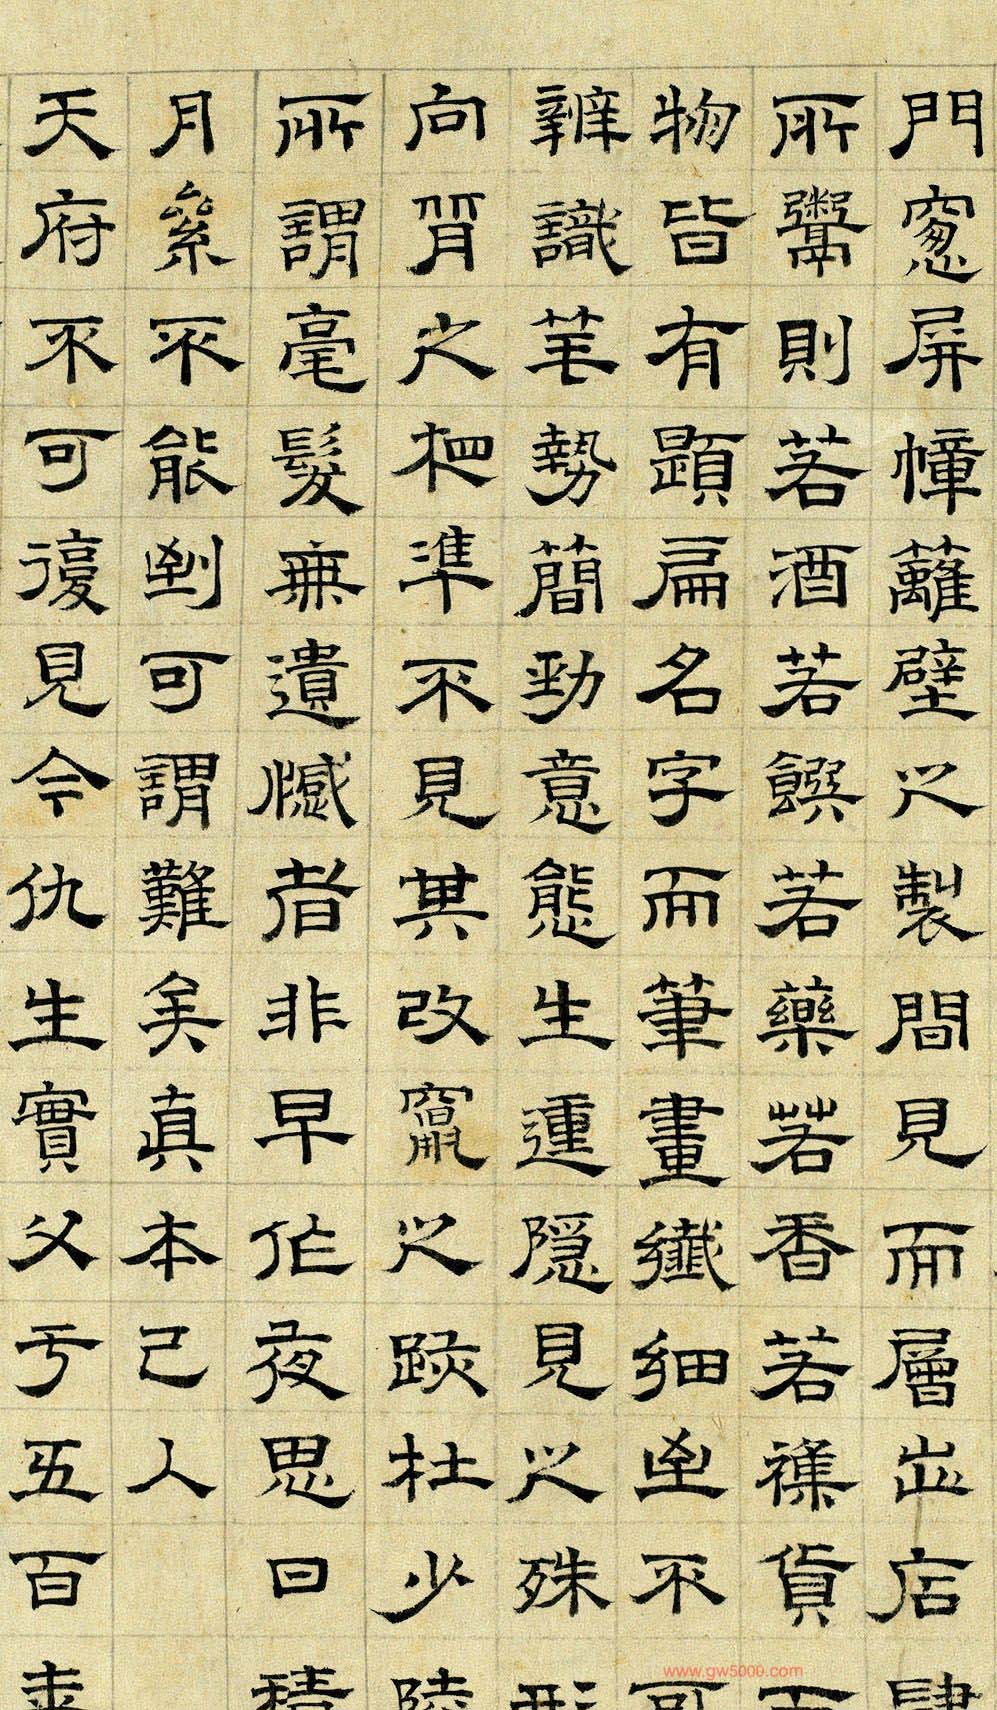 門窻屏幛籬壁之製間見而層出店肆
所鬻則若酒若饌若藥若香若襍貨百
物皆有題扁名字而筆畫纖細至不可
辨識茟勢簡勁意態生運隱見之殊形
向背之相準不見其改竄之跡杜少陵
所謂毫髮無遺憾者非早作夜思日積
月絫不能到可謂難矣真本已入
天府不可復見今仇生實父于五百
www.gw5000.com